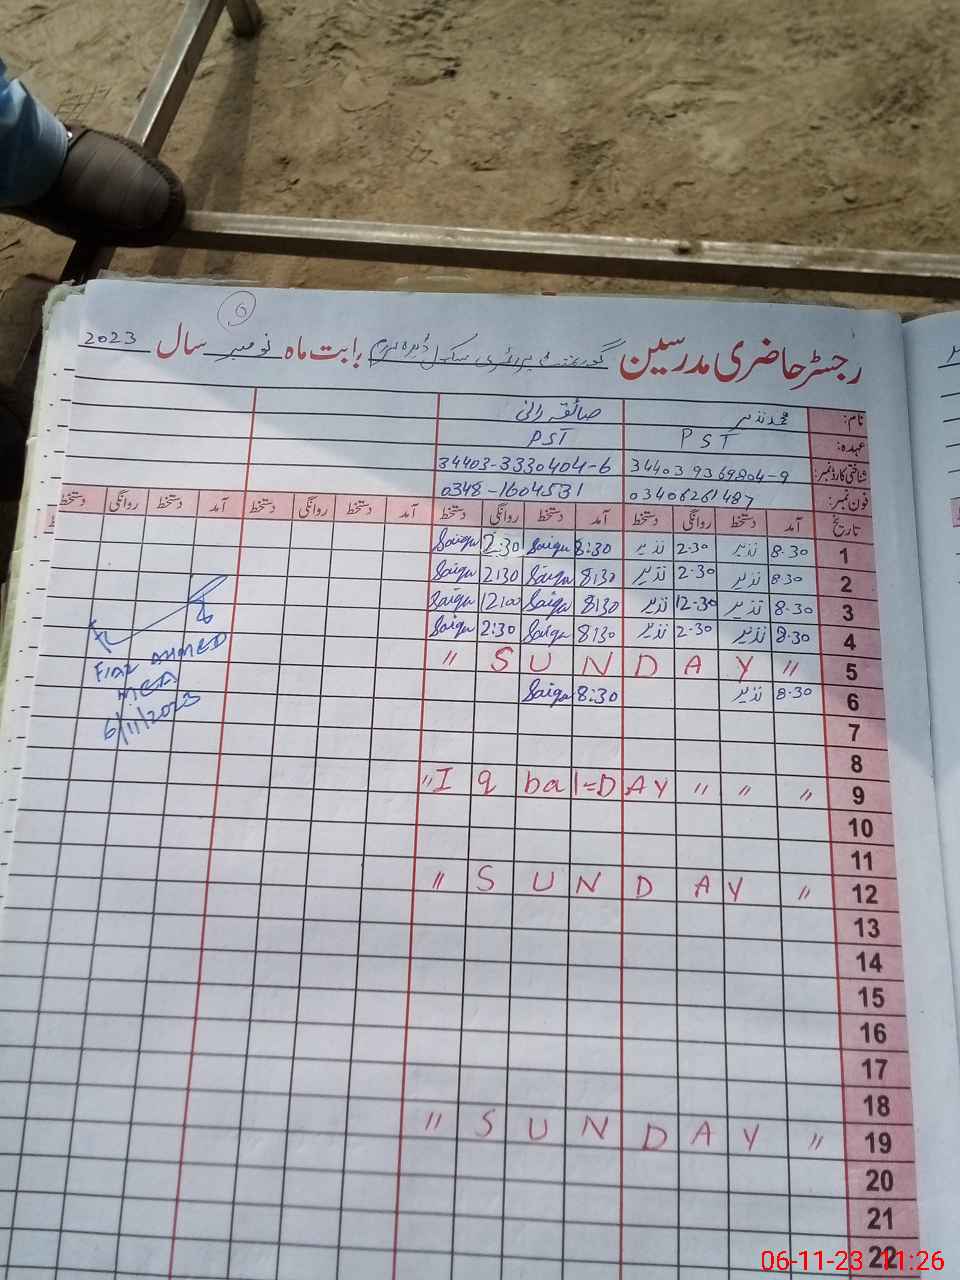 6
رجسٹر حاضری مدرسین گورنمنٹ پرائمری سکول بابت ماہ نومبر سال 2023
نام: محمد نذیر صائقہ رانی
عہدہ: PST PST
شناختی کارڈ نمبر: 34403-3330404-6
فون نمبر: 03406261487 0348-1604531
تاریخ آمد دستخط روانگی دستخط آمد دستخط روانگی دستخط آمد دستخط روانگی دستخط آمد دستخط روانگی دستخط
1 8.30 نذیر 2.30 نذیر 8:30 Saiqa 2:30 Saiqa
2 8.30 نذیر 2.30 نذیر 8:30 Saiqa 2:30 Saiqa
3 8.30 نذیر 12.30 نذیر 8:30 Saiqa 12:00 Saiqa
4 8.30 نذیر 2.30 نذیر 8:30 Saiqa 2:30 Saiqa
5 " SUNDAY "
6 8.30 نذیر 8:30 Saiqa
7
8
9 " Iqbal=DAY " " "
10
11
12 " SUNDAY "
13
14
15
16
17
18
19 " SUNDAY "
20
21
22
FIAZ AHMED
MEA
6/11/2023
06-11-23 11:26